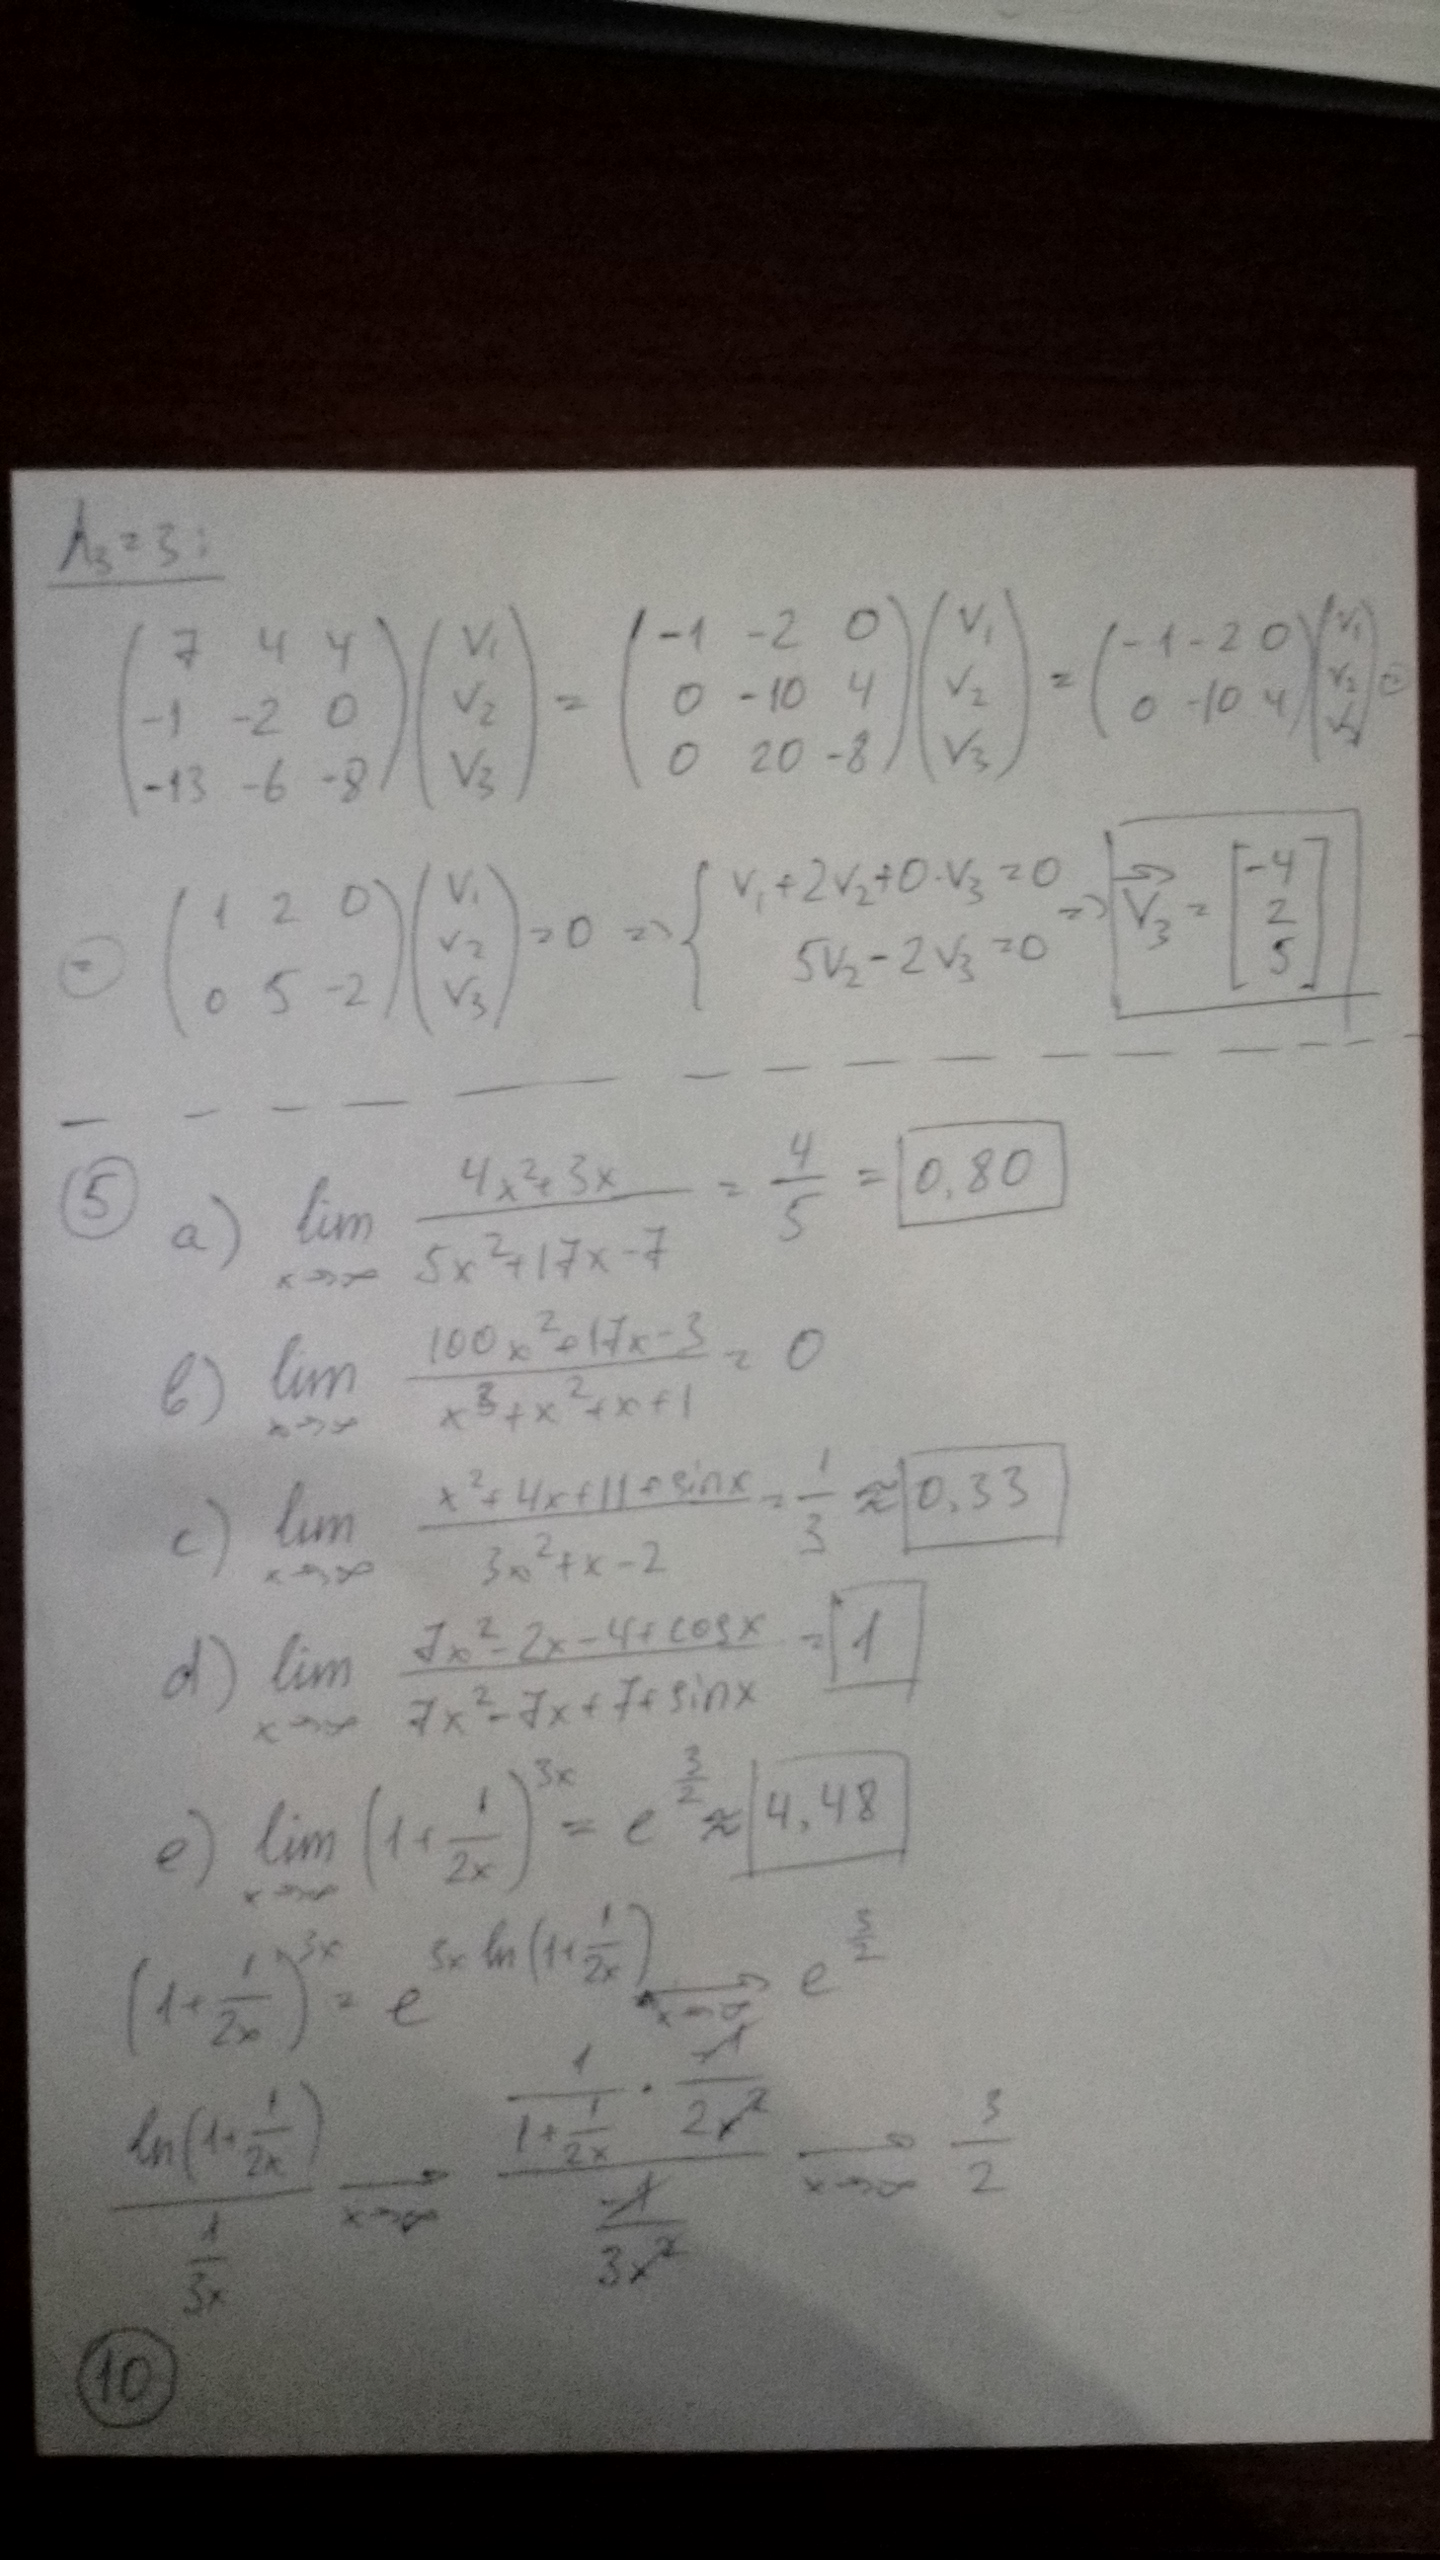 λ₃=3:
(7 4 4; -1 -2 0; -13 -6 -8)(v₁; v₂; v₃) = (-1 -2 0; 0 -10 4; 0 20 -8)(v₁; v₂; v₃) = (-1 -2 0; 0 -10 4)(v₁; v₂; v₃) =
= (1 2 0; 0 5 -2)(v₁; v₂; v₃) = 0 => { v₁+2v₂+0·v₃=0; 5v₂-2v₃=0 => v₃ = [-4; 2; 5]
5 a) lim x→∞ (4x²+3x)/(5x²+17x-7) = 4/5 = 0,80
b) lim x→∞ (100x²+17x-3)/(x³+x²+x+1) = 0
c) lim x→∞ (x²+4x+11+sinx)/(3x²+x-2) = 1/3 ≈ 0,33
d) lim x→∞ (7x²-2x-4+cosx)/(7x²-7x+7+sinx) = 1
e) lim x→∞ (1+1/(2x))^(3x) = e^(3/2) ≈ 4,48
(1+1/(2x))^(3x) = e^(3x ln(1+1/(2x))) → x→∞ e^(3/2)
ln(1+1/(2x))/(1/(3x)) → x→∞ (1/(1+1/(2x)) · -1/(2x²))/(-1/(3x²)) → x→∞ 3/2
10